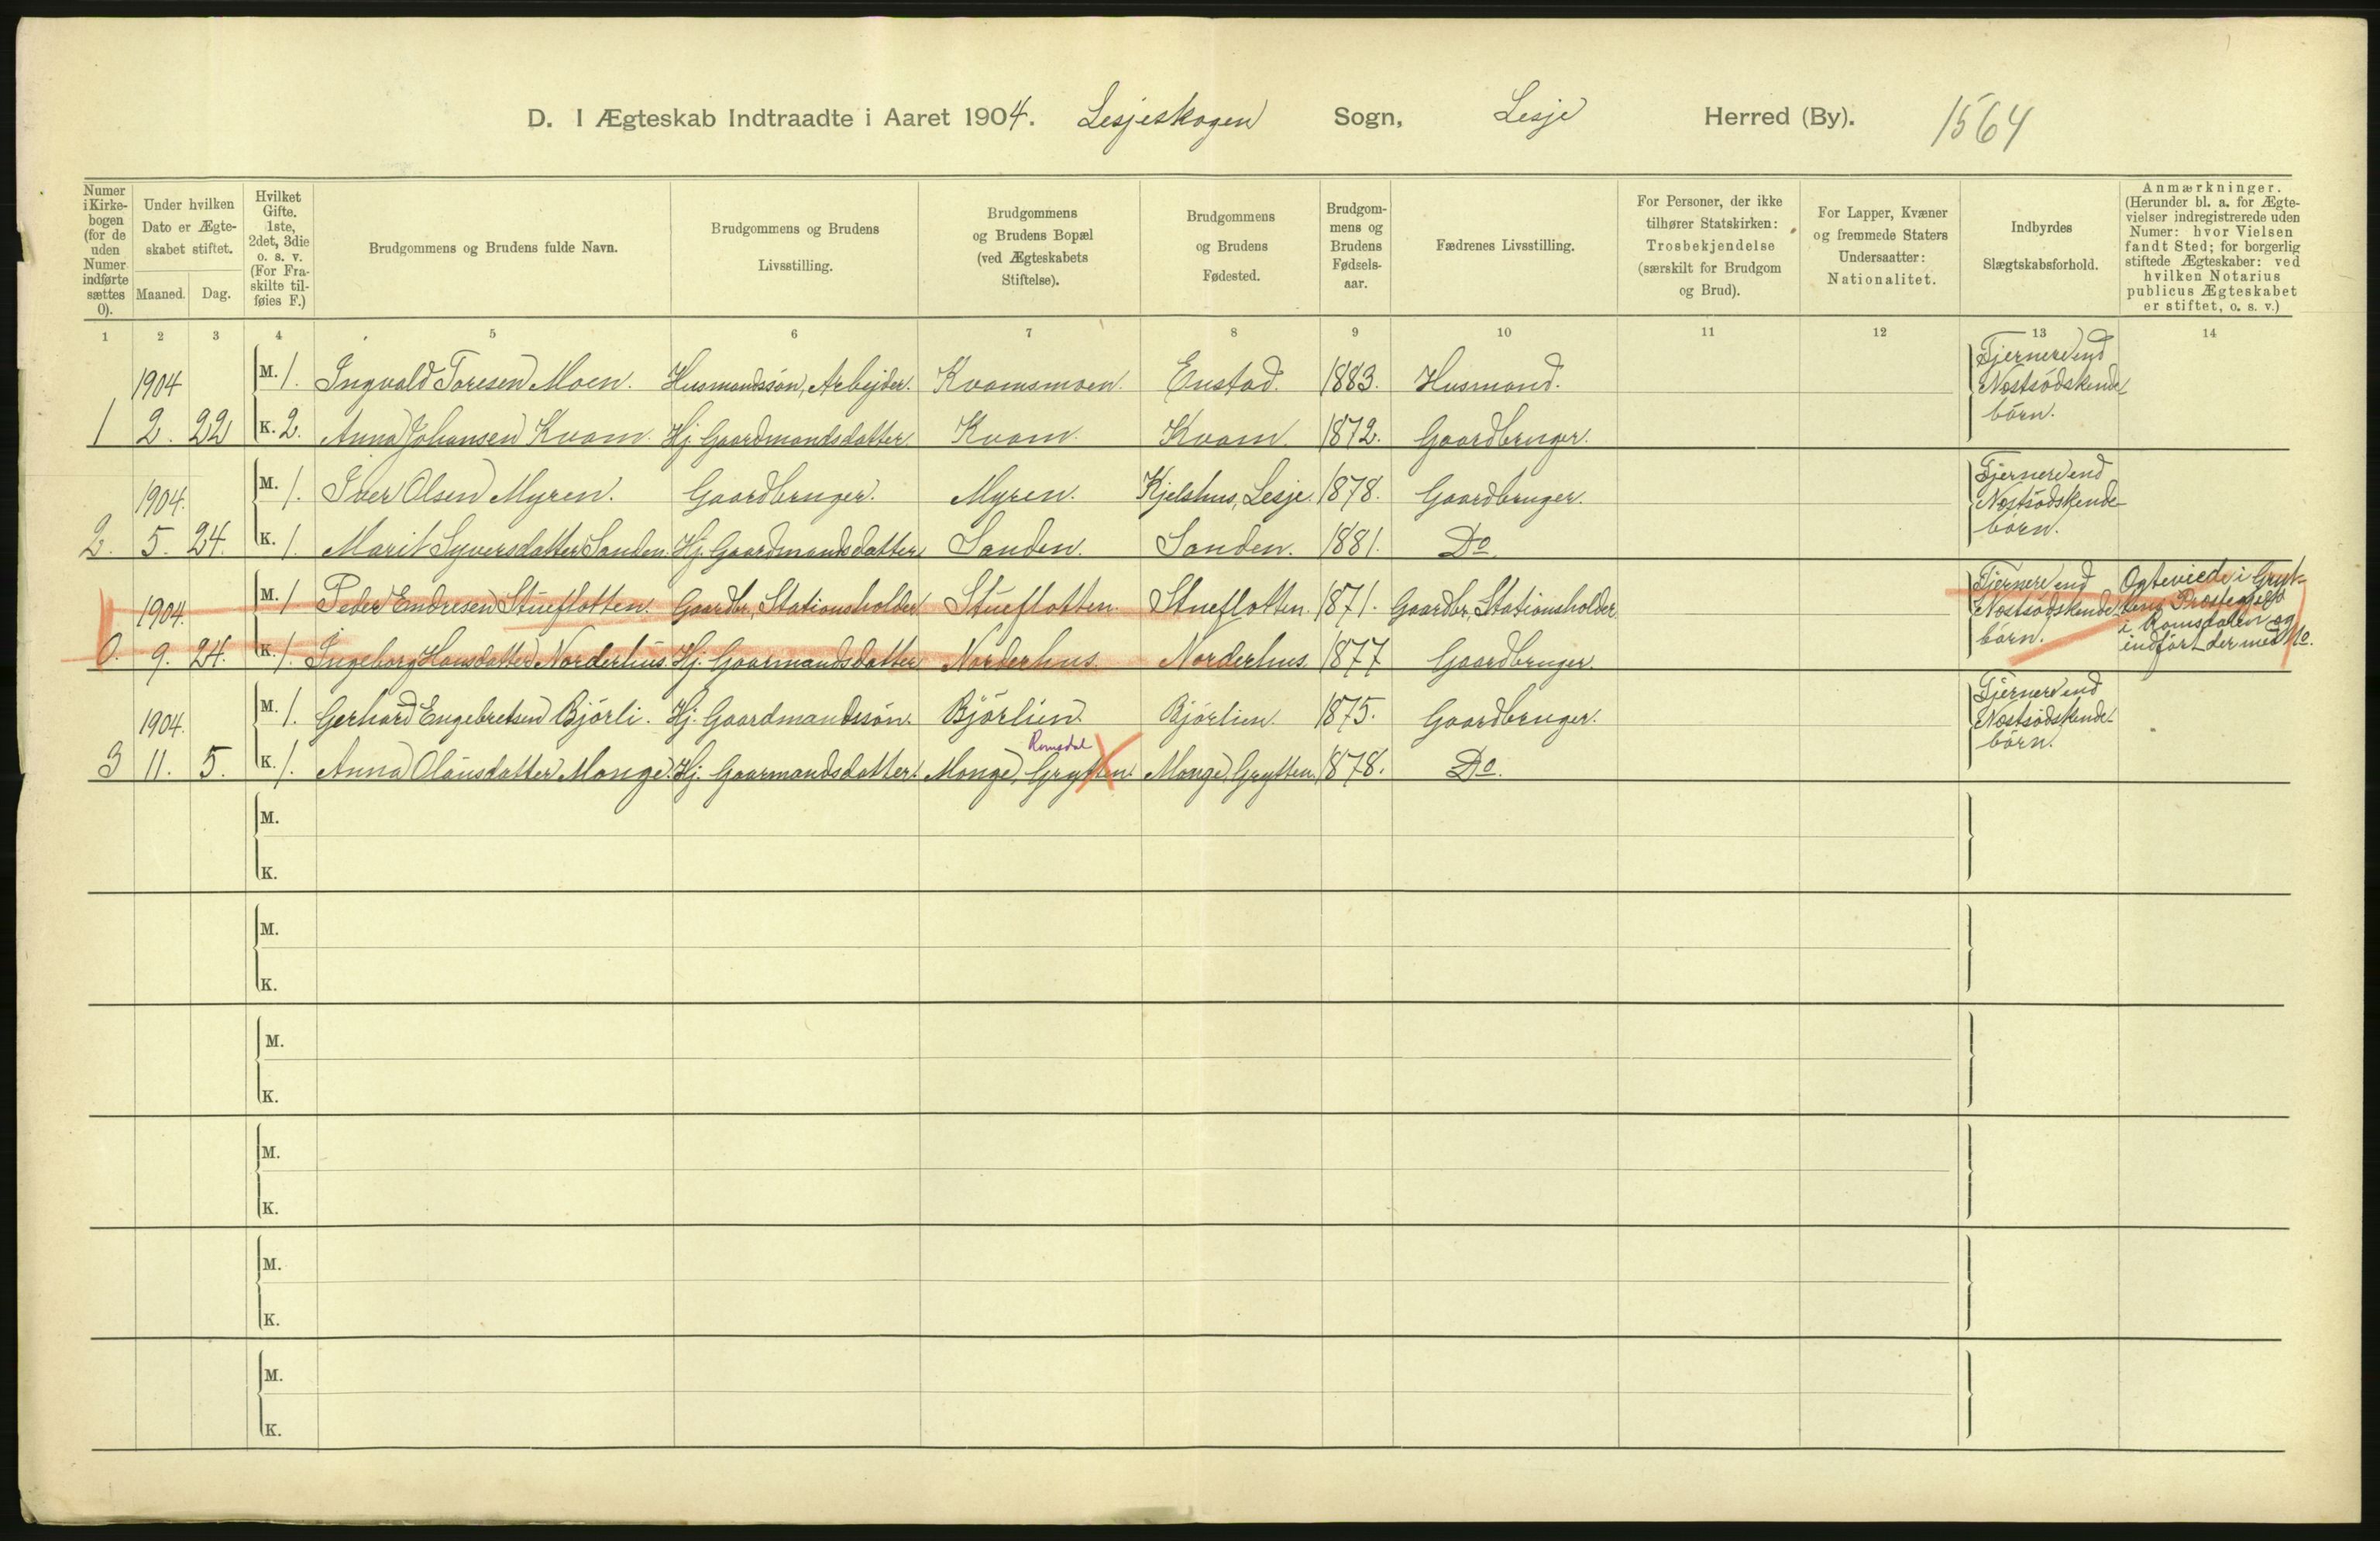 D. I Ægteskab Indtraadte i Aaret 1904. Lesjeskogen Sogn, Lesje Herred (By). 1564
Numer i Kirke-bogen (for de uden Numer indførte sættes 0).
Under hvilken Dato er Ægte-skabet stiftet.
Maaned. Dag.
Hvilket Gifte. 1ste, 2det, 3die o. s. v. (For Fra-skilte til-føies F.)
Brudgommens og Brudens fulde Navn.
Brudgommens og Brudens Livsstilling.
Brudgommens og Brudens Bopæl (ved Ægteskabets Stiftelse).
Brudgommens og Brudens Fødested.
Brudgom-mens og Brudens Fødsels-aar.
Fædrenes Livsstilling.
For Personer, der ikke tilhører Statskirken: Trosbekjendelse (særskilt for Brudgom og Brud).
For Lapper, Kvæner og fremmede Staters Undersaatter: Nationalitet.
Indbyrdes Slægtskabsforhold.
Anmærkninger. (Herunder bl. a. for Ægte-vielser indregistrerede uden Numer: hvor Vielsen fandt Sted; for borgerlig stiftede Ægteskaber: ved hvilken Notarius publicus Ægteskabet er stiftet, o. s. v.)
1 2 3 4 5 6 7 8 9 10 11 12 13 14
1904 M. 1. Ingvald Toresen Moen. Husmandssøn, Arbejder. Kvamsmoen. Enstad. 1883. Husmand. Fjernere end Næstsødskende-børn.
1 2. 22 K. 2. Anna Johansen Kvam. Hj. Gaardmandsdatter. Kvam. Kvam. 1872. Gaardbruger.
1904. M. 1. Iver Olsen Myren. Gaardbruger. Myren. Kjelshus, Lesje. 1878. Gaardbruger. Fjernere end Næstsødskende-børn.
2. 5. 24. K. 1. Marit Syversdatter Sanden. Hj. Gaardmandsdatter. Sanden. Sanden. 1881. Do.
1904. M. 1 Peder Endresen Stueflotten. Gaardbr., Stationsholder Stueflotten. Stueflotten. 1871. Gaardbr., Stationsholder. Fjernere end Næstsødskende-børn. Ægteviede i Gryt-tens Præstegjeld i Romsdalen og indført der med No.
0. 9. 24. K. 1. Ingeborg Hansdatter Norderhus. Hj. Gaarmandsdatter Norderhus. Norderhus. 1877 Gaardbruger.
1904. M. 1. Gerhard Engebretsen Bjørli. Hj. Gaardmandssøn. Bjørlien. Bjørlien. 1875. Gaardbruger. Fjernere end Næstsødskende-børn.
Romsdal
3 11. 5. K. 1. Anna Olausdatter Monge. Hj. Gaarmandsdatter. Monge, Grytten. Monge, Grytten. 1878. Do.
M.
K.
M.
K.
M.
K.
M.
K.
M.
K.
M.
K.